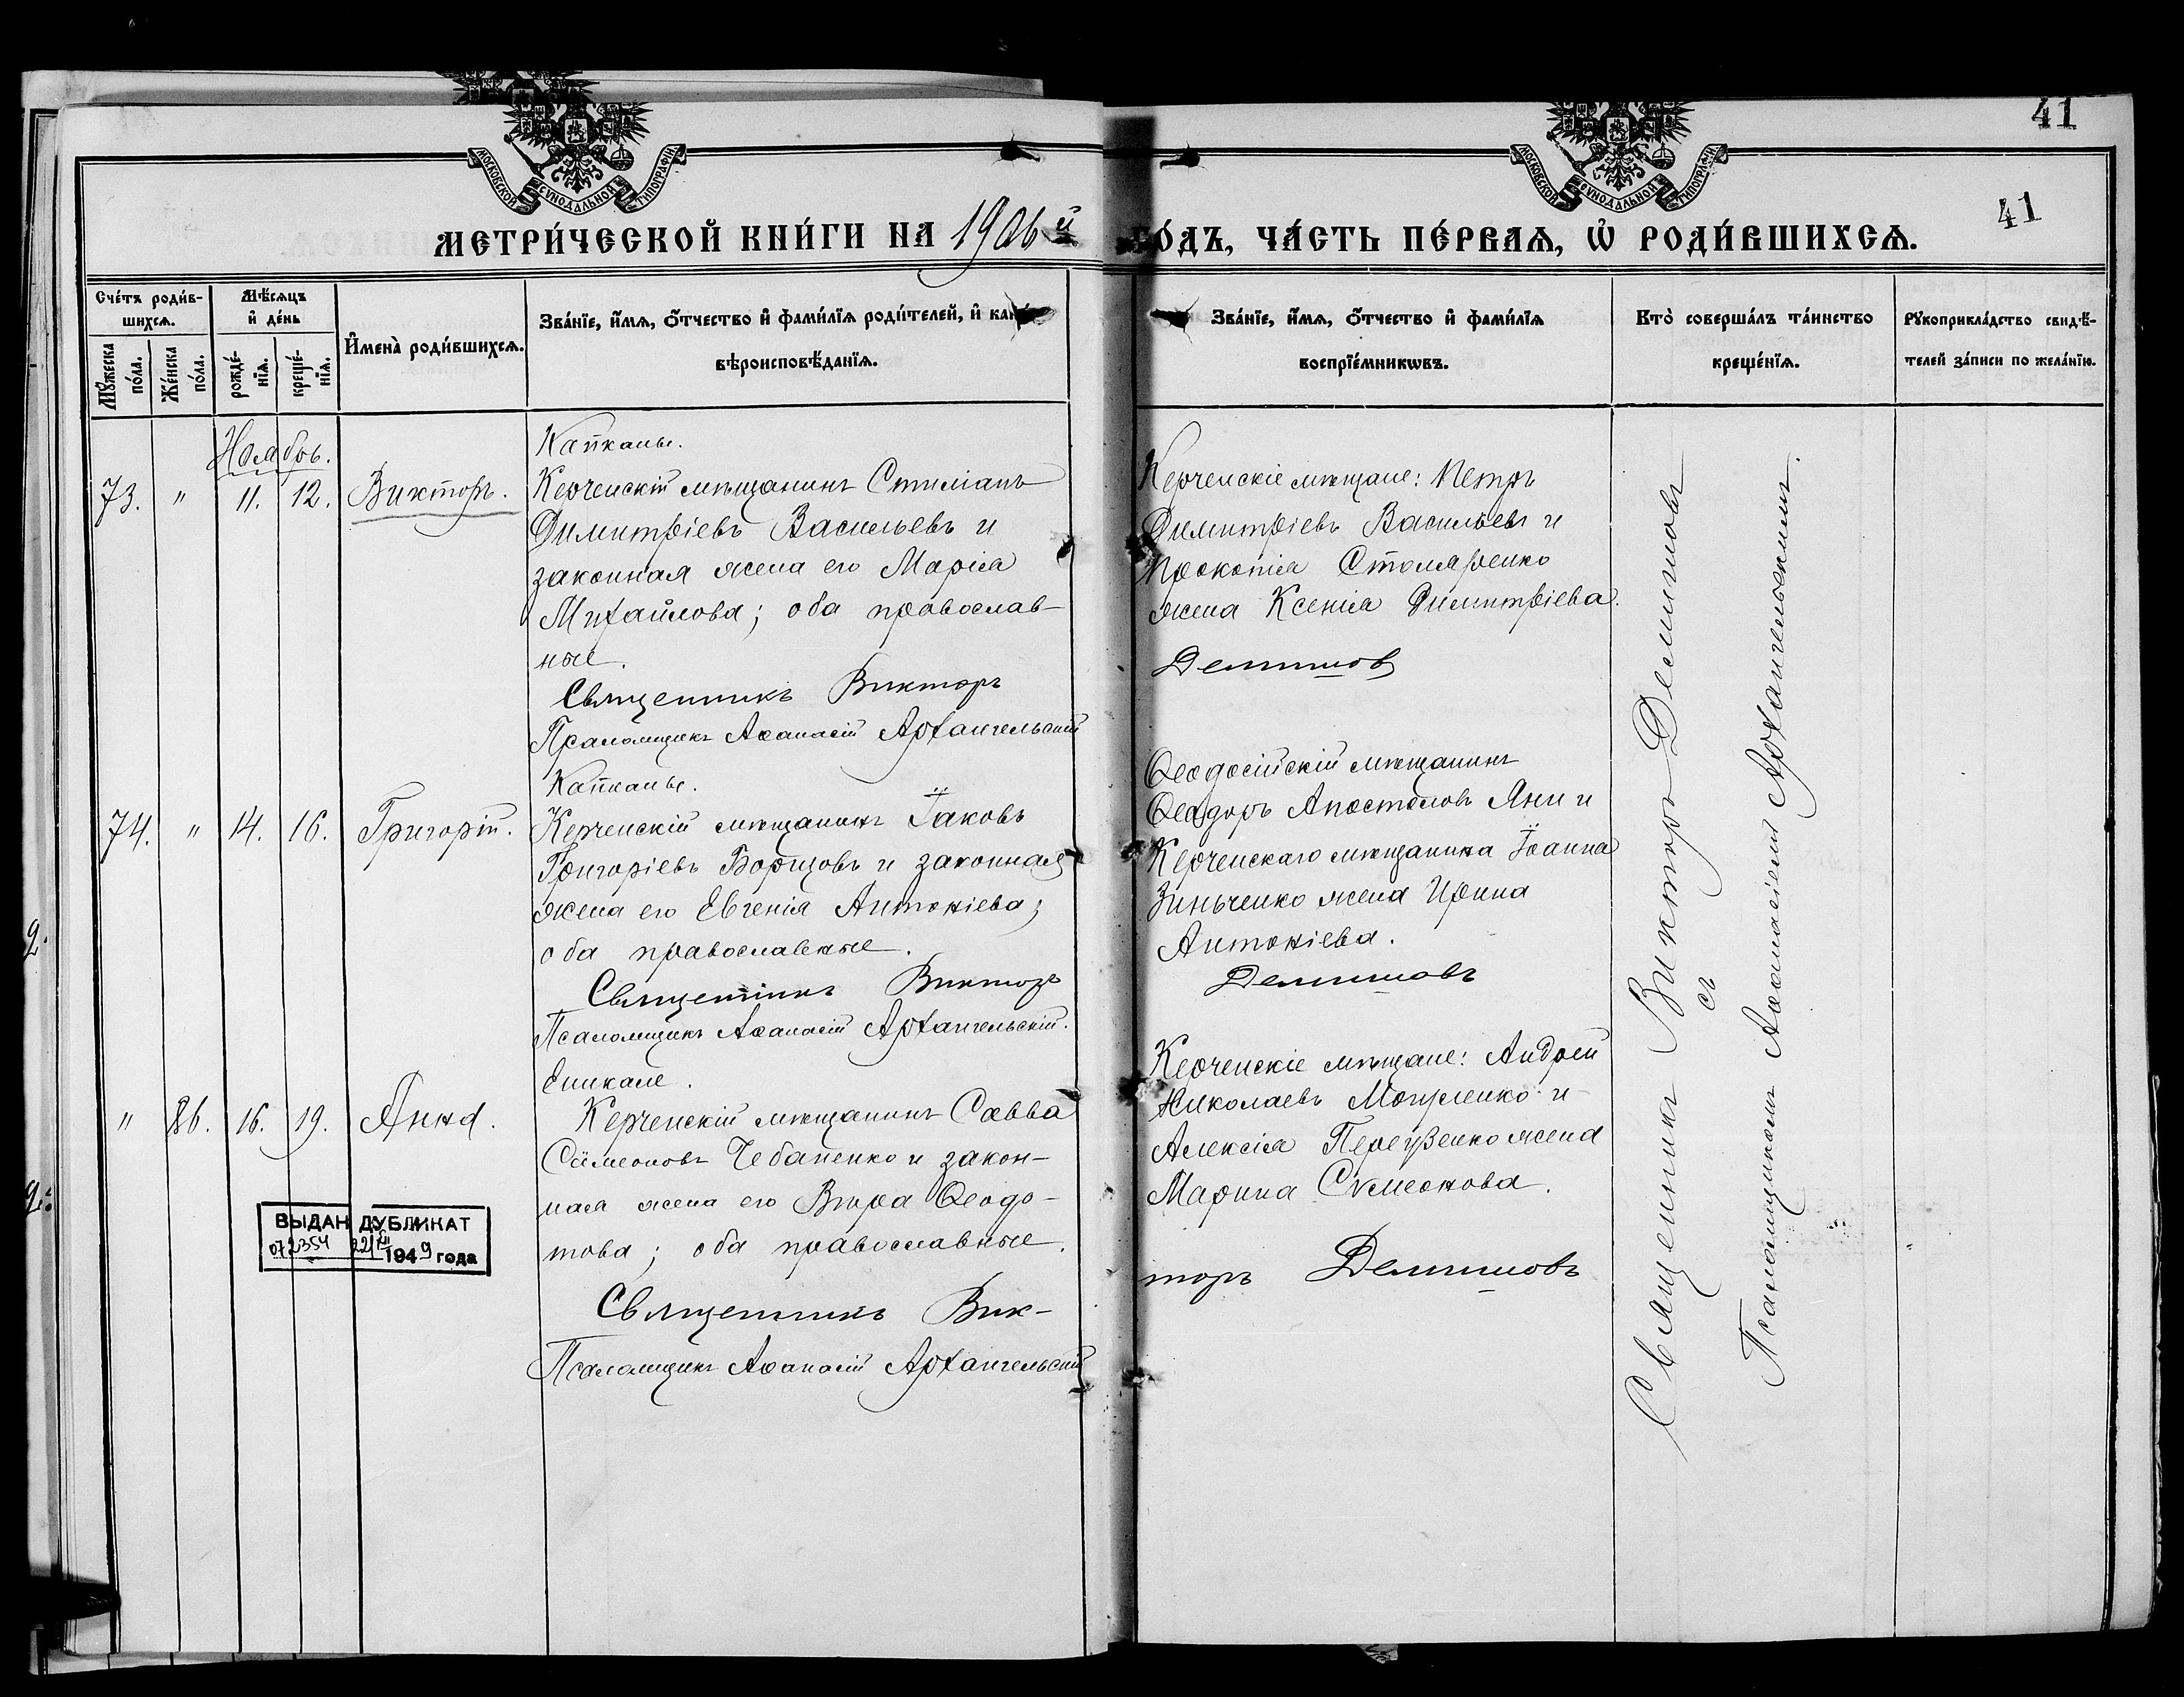 41
МОСКОВСКОЙ СѴНОДАЛЬНОЙ ТИПОГРАФІИ
МОСКОВСКОЙ СѴНОДАЛЬНОЙ ТИПОГРАФІИ
41
МЕТРИ́ЧЕСКОЙ КНИ́ГИ НА 1906й ГО́ДЪ, ЧА́СТЬ ПЕ́РВАѦ, Ѡ҆ РОДИ́ВШИХСѦ.
Сче́тъ роди́в-
шихсѧ.
Мꙋ́жеска по́ла.
Же́нска по́ла.
Мѣ́сѧцъ и҆ де́нь
рожде́-нїѧ.
креще́-нїѧ.
И҆мена̀ роди́вшихсѧ.
Зва́нїе, и҆́мѧ, ѻ҆́тчество и҆ фами́лїѧ роди́телей, и҆ како́
вѣроисповѣ́данїѧ.
Зва́нїе, и҆́мѧ, ѻ҆́тчество и҆ фами́лїѧ
воспрїе́мникѡвъ.
Кто̀ соверша́лъ та́инство
креще́нїѧ.
Рꙋкоприкла́дство свидѣ́-
телей за́писи по жела́нїю.
Ноябрь.
73. " 11. 12. Викторъ.
Капканы.
Керченскій мѣщанинъ Стиліанъ
Димитріевъ Васильевъ и
законная жена его Марія
Михайлова; оба православ-
ные.
Священникъ Викторъ
Псаломщикъ Аѳанасій Архангельскій
Керченскіе мѣщане: Петръ
Димитріевъ Васильевъ и
Прокопія Столяренко
жена Ксенія Димитріева.
Деминовъ
74. " 14. 16. Григорій.
Капканы.
Керченскій мѣщанинъ Іаковъ
Григоріевъ Борщовъ и законная
жена его Евгенія Антоніева;
оба православные.
Священникъ Викторъ
Псаломщикъ Аѳанасій Архангельскій.
Ѳеодосійскій мѣщанинъ
Ѳеодоръ Апостоловъ Яни и
Керченскаго мѣщанина Іоанна
Зинченко жена Ирина
Антоніева.
Деминовъ
" 86. 16. 19. Анна.
Еникале.
Керченскій мѣщанинъ Савва
Симеоновъ Чебаненко и закон-
ная жена его Вѣра Ѳеодо-
това; оба православные.
Священникъ Вик-
Псаломщикъ Аѳанасій Архангельскій
Керченскіе мѣщане: Андрей
Николаевъ и
Алексія жена
Марина Симеонова.
торъ Деминовъ
Священникъ Викторъ Деминовъ
съ
Псаломщикомъ Аѳанасіемъ Архангельскимъ.
ВЫДАН ДУБЛИКАТ
072354 22/XII 1949 года